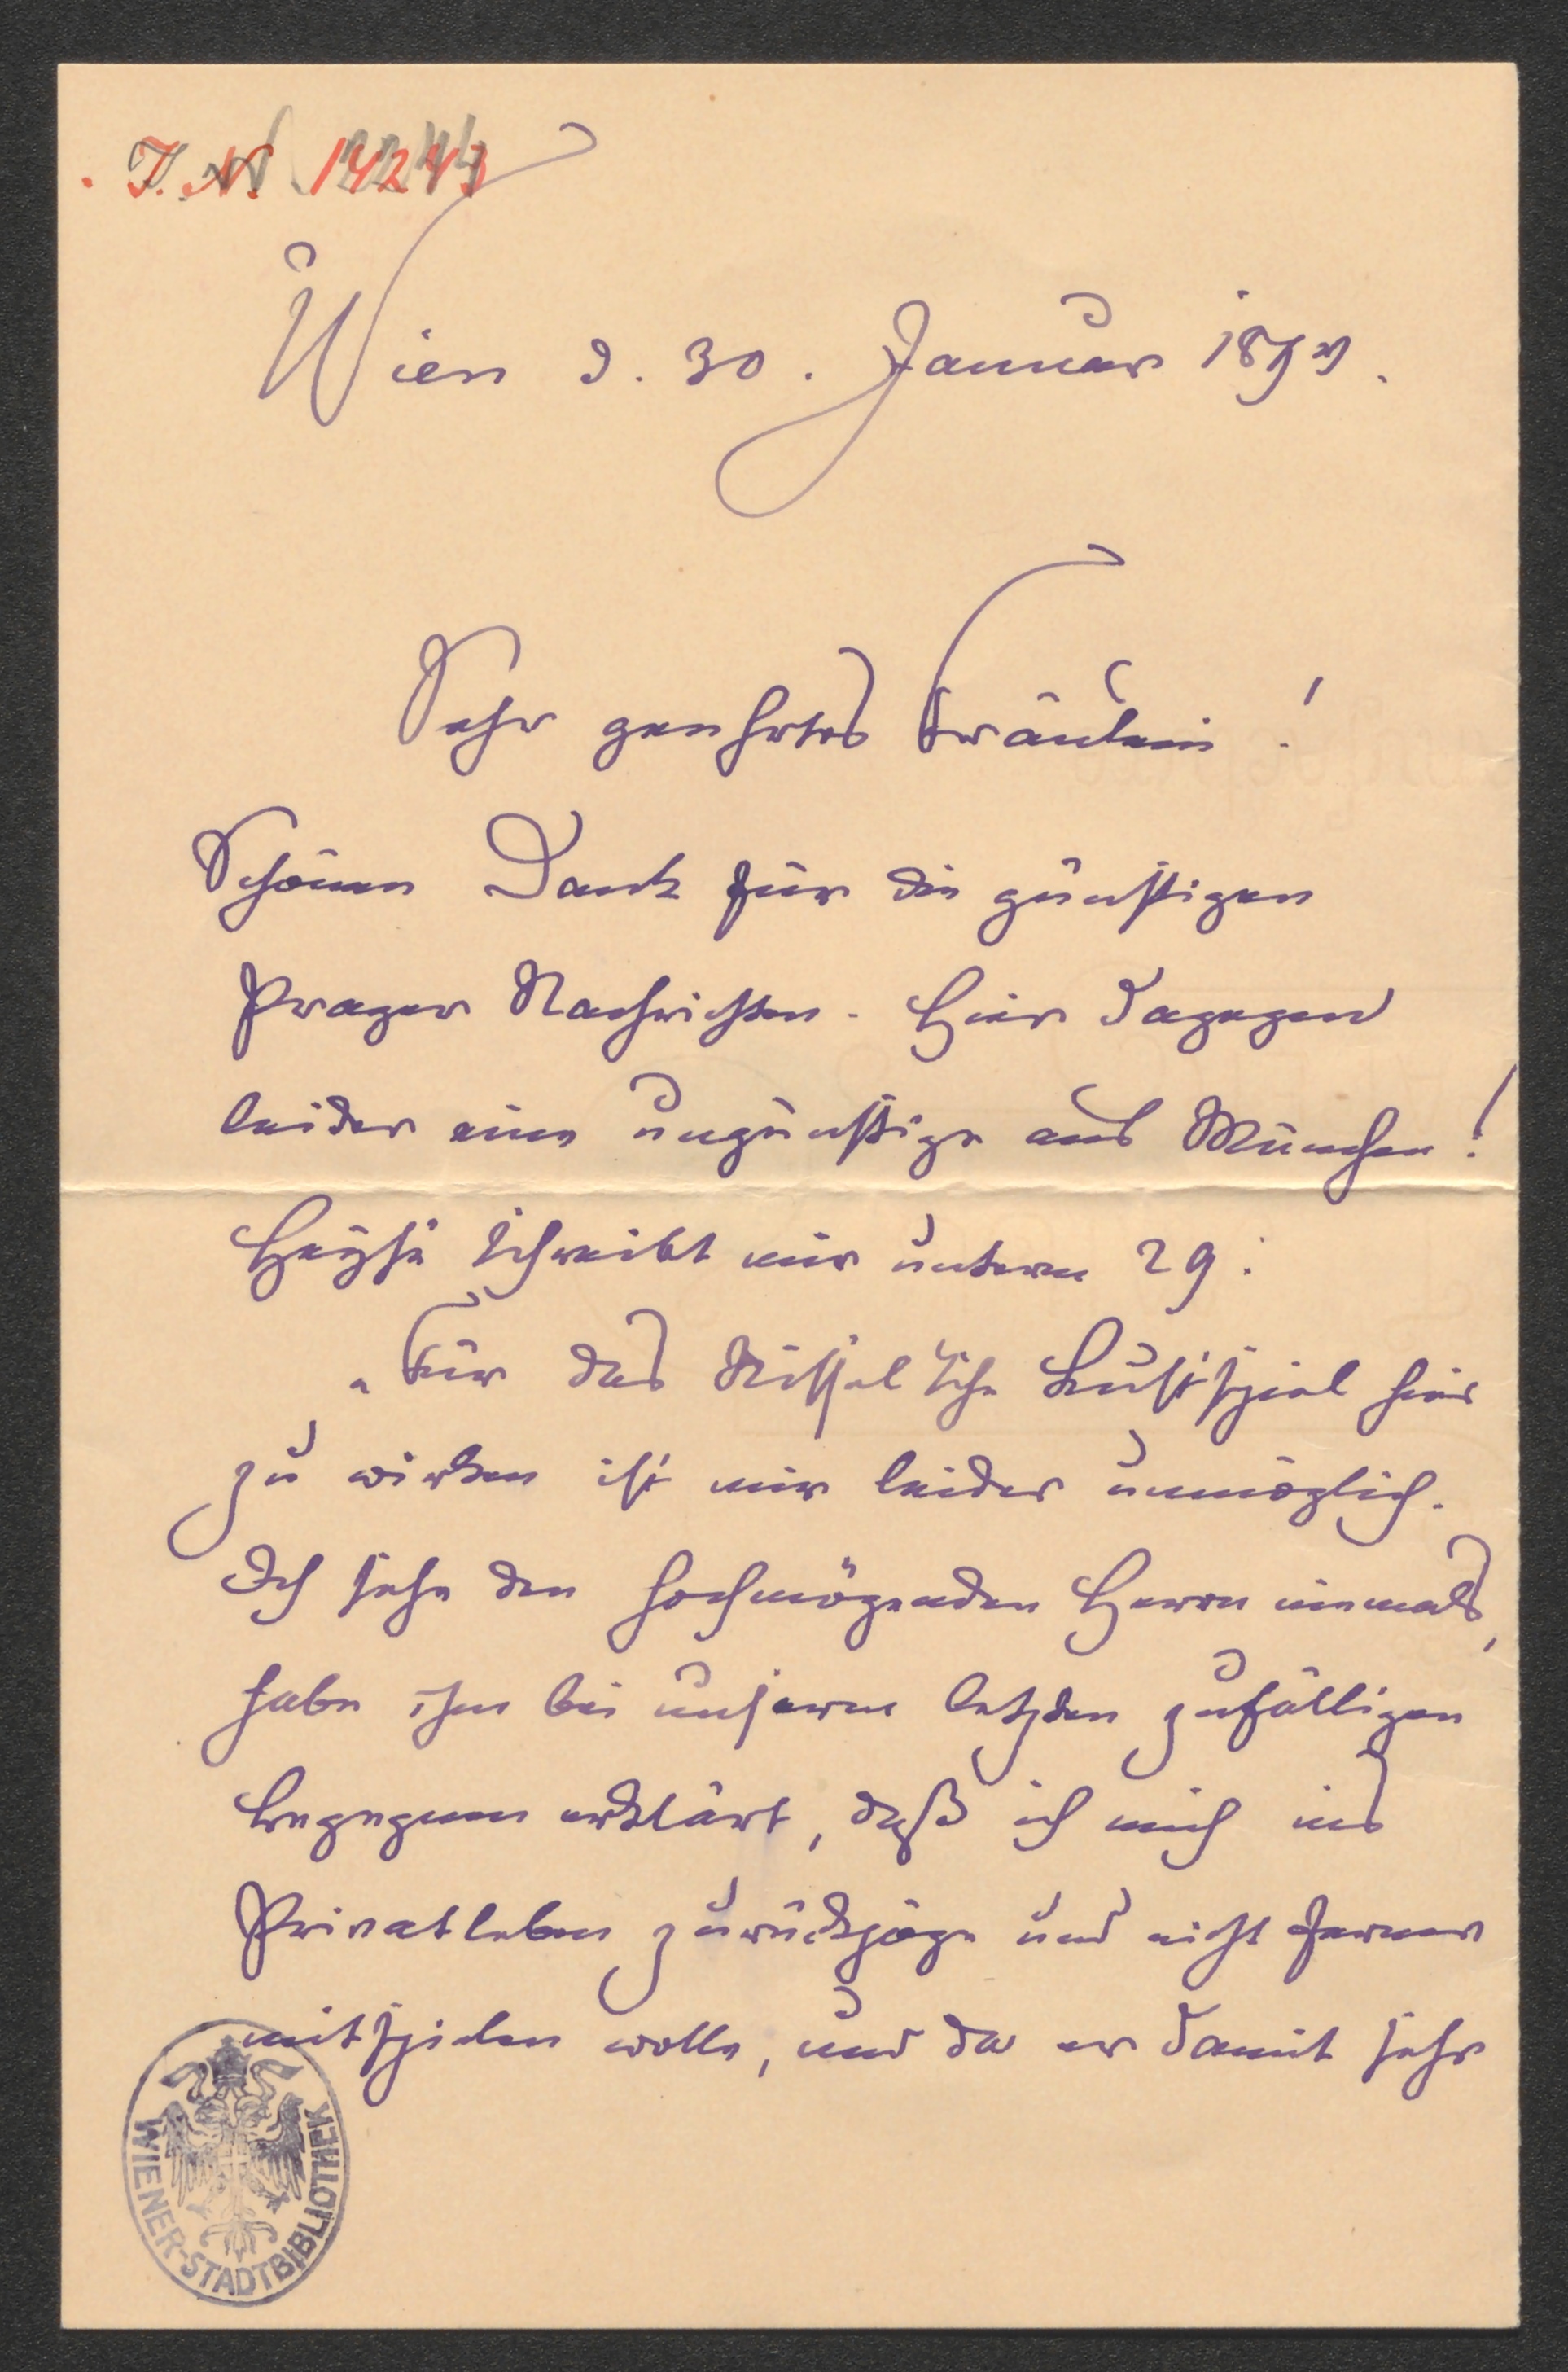 I. N. 
Wien d. 30. Januar
Sehr geehrtes Fräulein!
Schönen Dank für die günstigen
Prager Nachrichten. Hier dagegen
leider eine ungünstige aus München!
Heyse schreibt mir unterm 29:
„Für das Nissel'sche Lustspiel hier
zu wirken ist mir leider unmöglich.
Ich sehe den hochmögenden Herrn niemals,
habe ihm bei unserem letzten zufälligen
Begegnen erklärt, daß ich mich ins
Privatleben zurückzöge und nicht ferner
mitspielen wolle, und da er damit sehr
WIENER-STADTBIBLIOTHEK